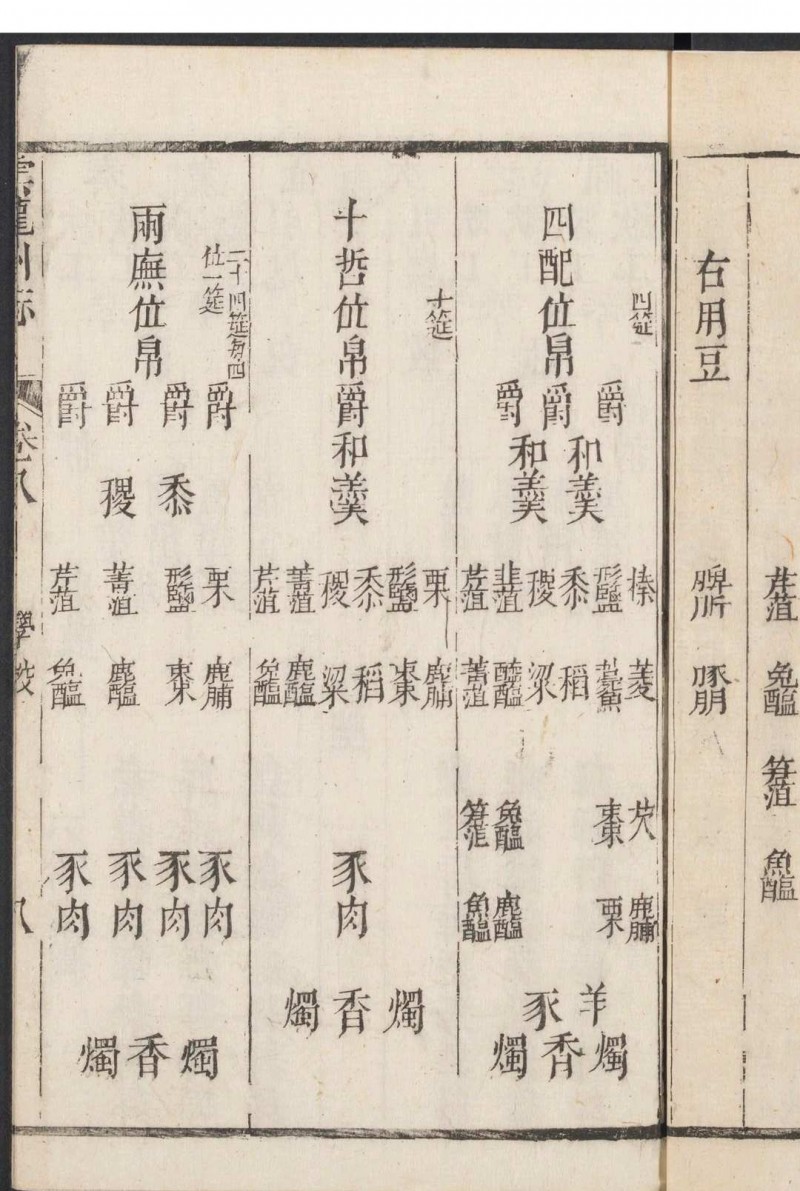 芹菹 兔醢 筍菹 魚醢
右用豆 脾䏡 豚𦙫
四筵
四配位帛
爵 爵 爵
和羹 和羹
榛 形鹽 黍 稷 韭菹 芹菹
菱 藁魚 稻 粱 醓醢 菁菹
芡 棗 兔醢 筍菹
鹿脯 栗 鹿醢 魚醢
羊 豕
燭 香 燭
十筵
十哲位帛爵和羹
栗 形鹽 黍 稷 菁菹 芹菹
鹿脯 棗 稻 粱 鹿醢 兔醢
豕肉
燭 香 燭
二十四筵每四
位一筵
兩廡位帛
爵 爵 爵 爵
黍 稷
栗 形鹽 菁菹 芹菹
鹿脯 棗 鹿醢 兔醢
豕肉 豕肉 豕肉 豕肉
燭 香 燭
雲龍州志 卷八 學校 八